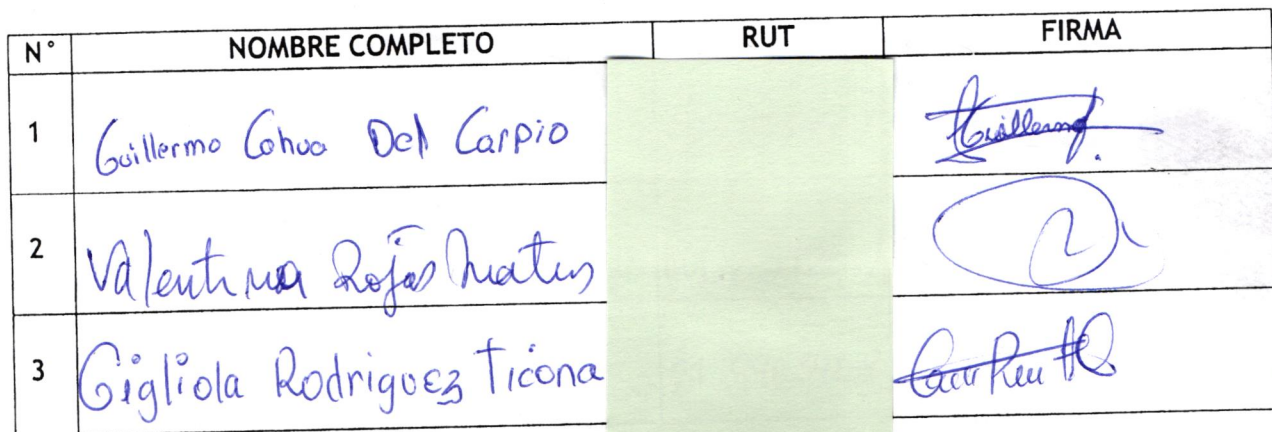 N° NOMBRE COMPLETO RUT FIRMA
1 Guillermo Cohua Del Carpio Guillermo
2 Valentina Rojas Matus
3 Gigliola Rodriguez Ticona